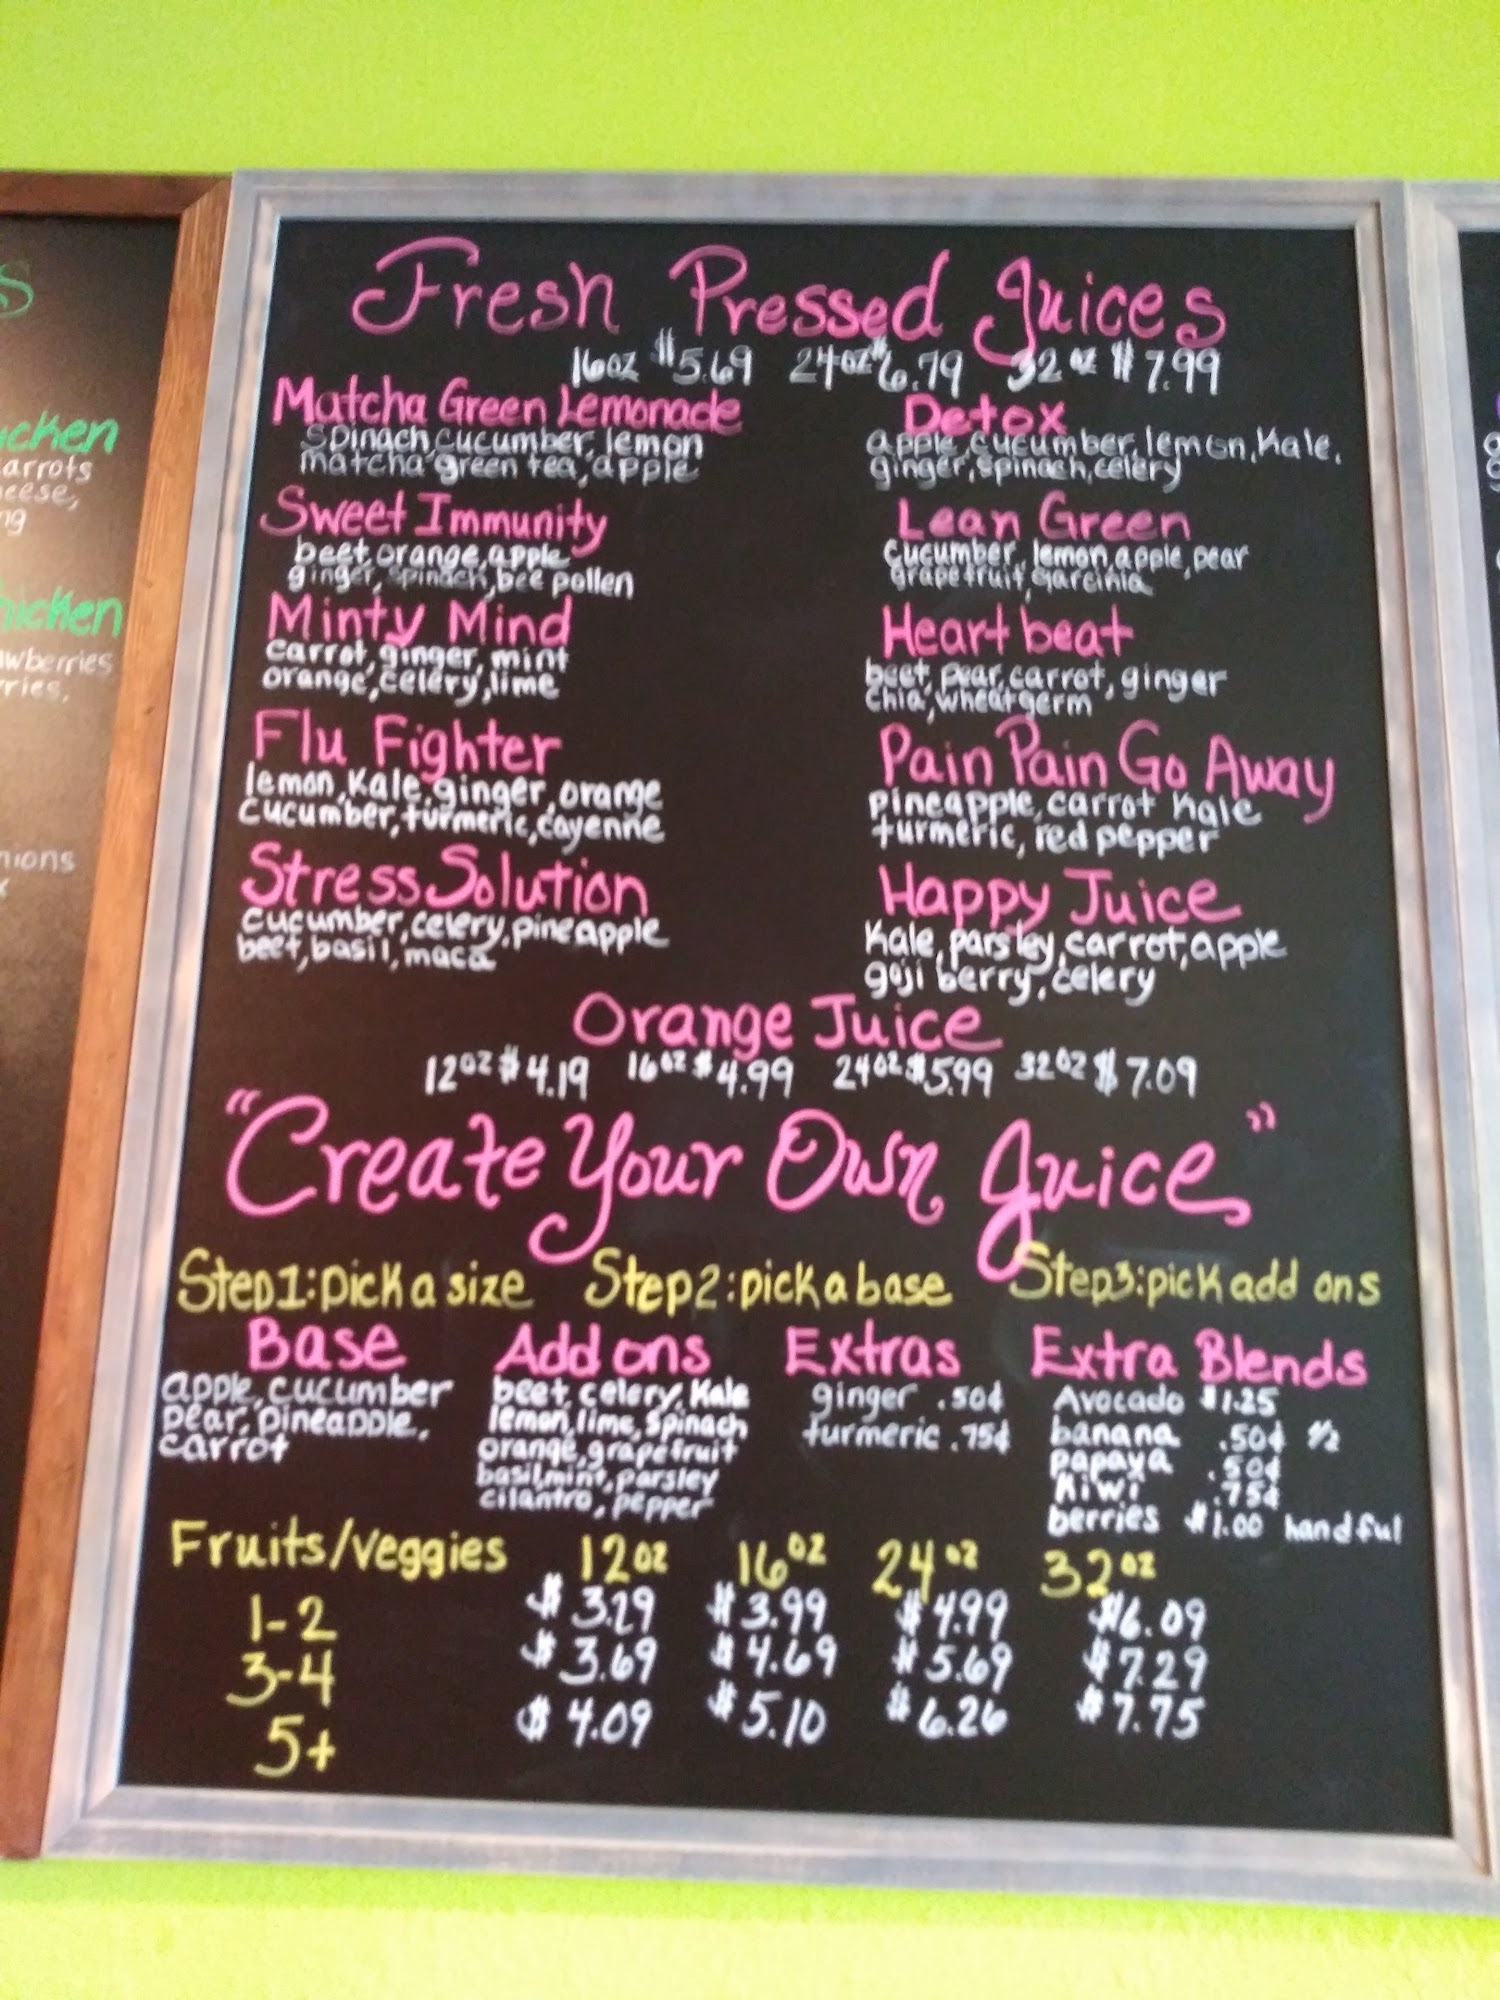 Fresh Pressed Juices
16oz $5.69 24oz $6.79 32oz $7.99
Matcha Green Lemonade
spinach, cucumber, lemon
matcha green tea, apple
Detox
apple, cucumber, lemon, kale,
ginger, spinach, celery
Sweet Immunity
beet, orange, apple
ginger, spinach, bee pollen
Lean Green
cucumber, lemon, apple, pear
grapefruit, garcinia
Minty Mind
carrot, ginger, mint
orange, celery, lime
Heart beat
beet, pear, carrot, ginger
chia, wheatgerm
Flu Fighter
lemon, kale, ginger, orange
cucumber, turmeric, cayenne
Pain Pain Go Away
pineapple, carrot kale
turmeric, red pepper
Stress Solution
cucumber, celery, pineapple
beet, basil, maca
Happy Juice
kale, parsley, carrot, apple
goji berry, celery
Orange Juice
12oz $4.19 16oz $4.99 24oz $5.99 32oz $7.09
"Create Your Own Juice"
Step 1: pick a size Step 2: pick a base Step 3: pick add ons
Base
apple, cucumber
pear, pineapple,
carrot
Add ons
beet, celery, kale
lemon, lime, spinach
orange, grapefruit
basil, mint, parsley
cilantro, pepper
Extras
ginger .50¢
turmeric .75¢
Extra Blends
Avocado $1.25
banana .50¢ 1/2
papaya .50¢
kiwi .75¢
berries $1.00 handful
Fruits/veggies 12oz 16oz 24oz 32oz
1-2 $3.29 $3.99 $4.99 $6.09
3-4 $3.69 $4.69 $5.69 $7.29
5+ $4.09 $5.10 $6.26 $7.75